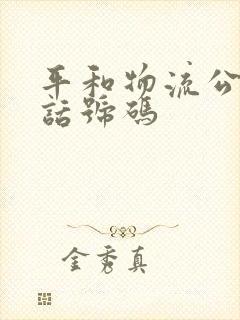 平和物流公
話號碼
金秀真